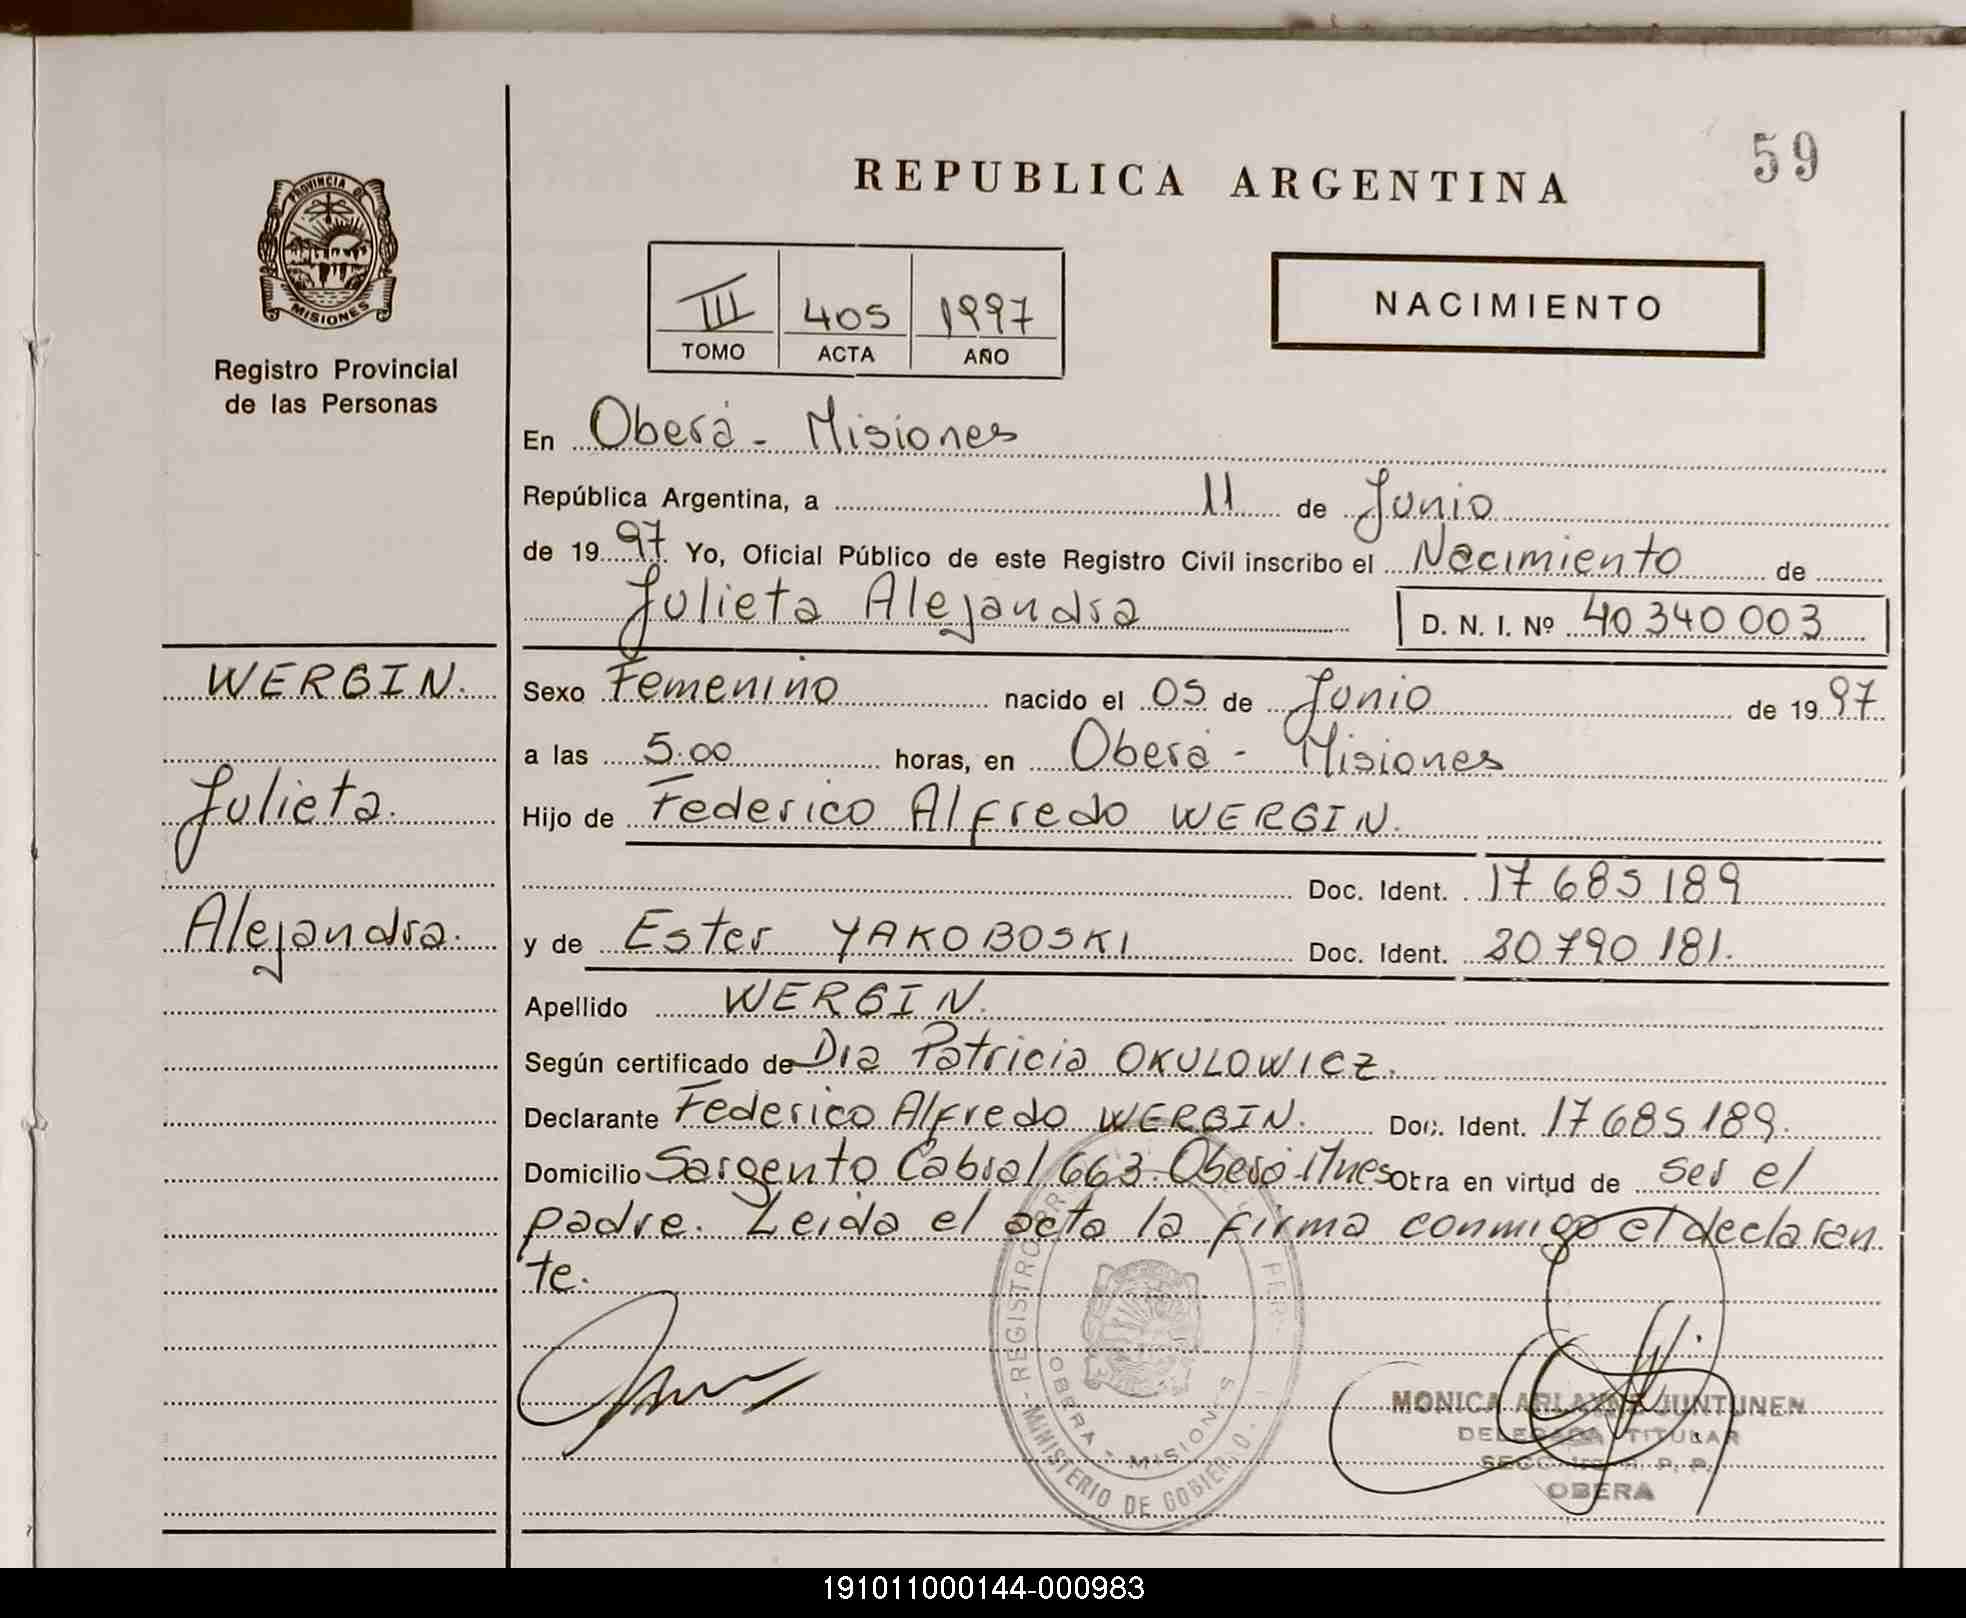 59
REPUBLICA ARGENTINA
PROVINCIA DE
MISIONES
Registro Provincial
de las Personas
III 405 1997
TOMO ACTA AÑO
NACIMIENTO
En Oberá - Misiones
República Argentina, a 11 de Junio
de 1997 Yo, Oficial Público de este Registro Civil inscribo el Nacimiento de
Julieta Alejandra D. N. I. Nº 40340003
WERBIN.
Julieta.
Alejandra.
Sexo Femenino nacido el 05 de Junio de 1997
a las 5:00 horas, en Oberá - Misiones
Hijo de Federico Alfredo WERBIN.
Doc. Ident. 17685189
y de Ester YAKOBOSKI Doc. Ident. 20790181.
Apellido WERBIN.
Según certificado de Dra Patricia OKULOWICZ.
Declarante Federico Alfredo WERBIN. Doc. Ident. 17685189.
Domicilio Sargento Cabral 663. Oberá-Mnes Obra en virtud de ser el
padre. Leida el acta la firma conmigo el declaran
te.
REGISTRO
OBERA - MISIONES
MINISTERIO DE GOBIERNO
MONICA ARLAYNE JUNTUNEN
DELEGADA TITULAR
OBERA
191011000144-000983